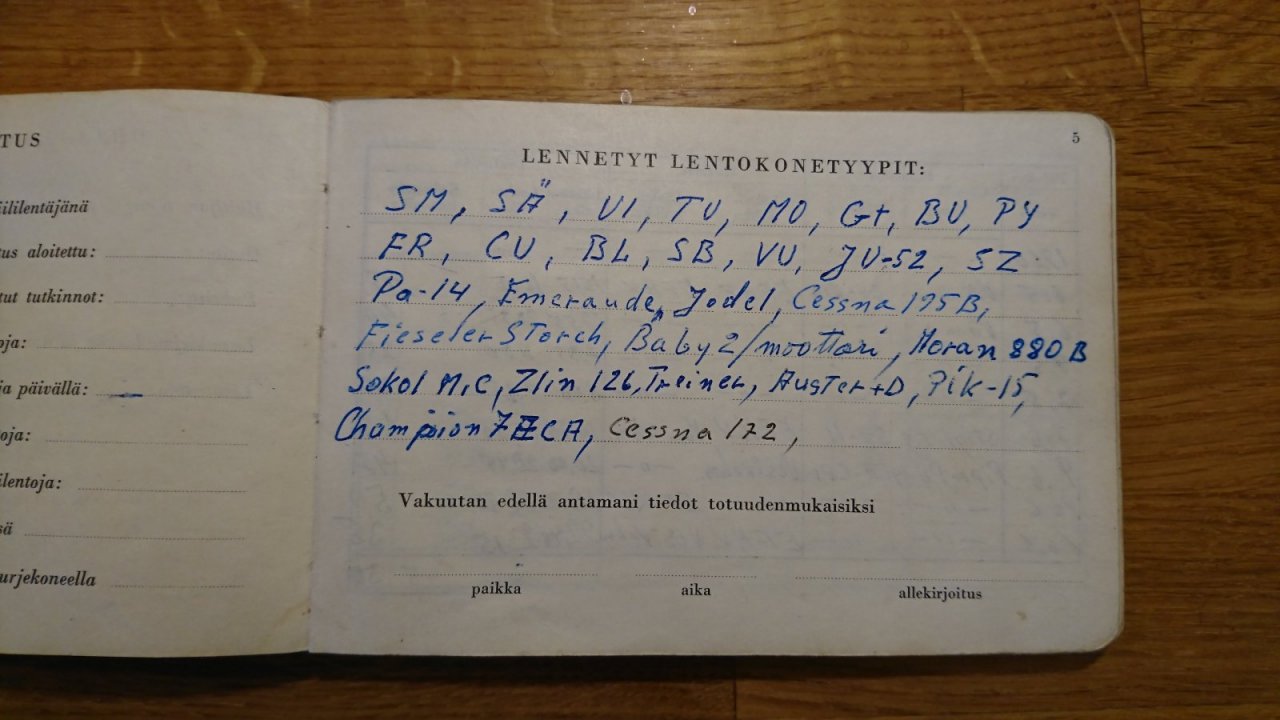 TUS
iililentäjänä
tus aloitettu:
tut tutkinnot:
oja:
ja päivällä:
oja:
ilentoja:
sä
urjekoneella
5
LENNETYT LENTOKONETYYPIT:
SM, SÄ, VI, TU, MO, Gt, BU, PY
FR, CU, BL, SB, VU, JU-52, SZ
Pa-14, Emeraude, Jodel, Cessna 175B,
Fieseler Storch, Bäby 2/moottori, Moran 880 B
Sokol M1C, Zlin 126, Treiner, Auster +D, Pik-15,
Champion 7ECA, Cessna 172,
Vakuutan edellä antamani tiedot totuudenmukaisiksi
paikka aika allekirjoitus